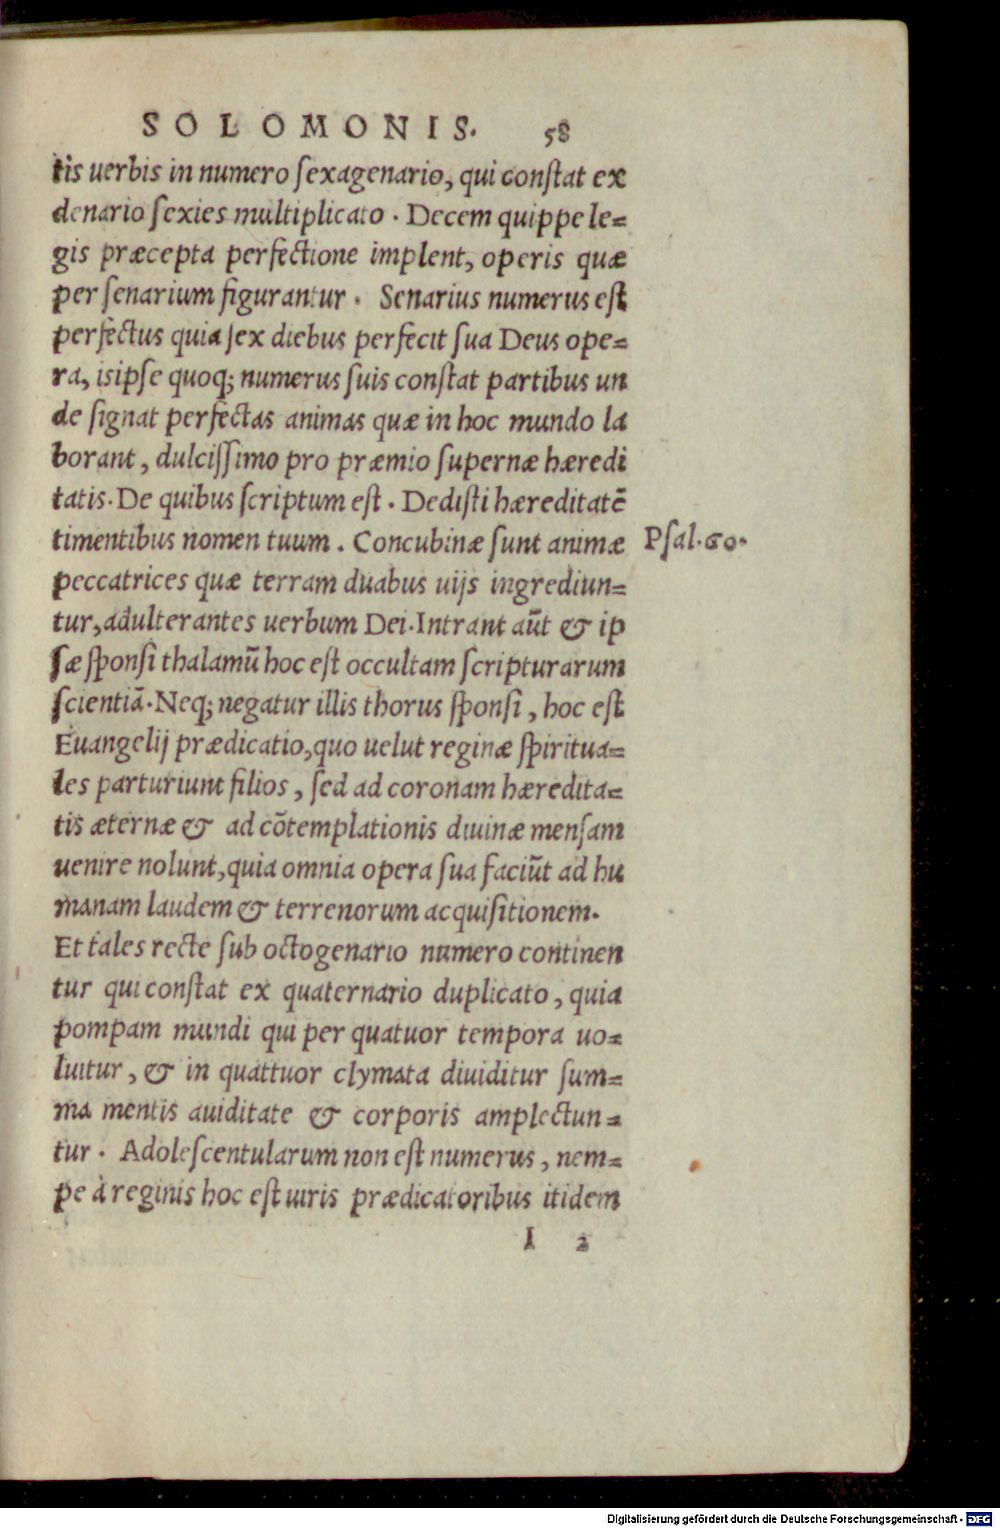 SOLOMONIS. 58
tis uerbis in numero ſexagenario, qui conſtat ex
denario ſexies multiplicato. Decem quippe le=
gis præcepta perfectione implent, operis quæ
per ſenarium figurantur. Senarius numerus eſt
perfectus quia ſex diebus perfecit ſua Deus ope=
ra, is ipſe quoq; numerus ſuis conſtat partibus un
de ſignat perfectas animas quæ in hoc mundo la
borant, dulciſſimo pro præmio ſupernæ hæredi
tatis. De quibus ſcriptum eſt. Dedisti hæreditatē
timentibus nomen tuum. Concubinæ ſunt animæ Pſal.60.
peccatrices quæ terram duabus uijs ingrediun=
tur, adulterantes uerbum Dei. Intrant aūt & ip
ſæ ſponſi thalamū hoc eſt occultam ſcripturarum
ſcientiā. Neq; negatur illis thorus ſponſi, hoc eſt
Euangelij prædicatio, quo uelut reginæ ſpiritua=
les parturiunt filios, ſed ad coronam hæredita=
tis æternæ & ad cōtemplationis diuinæ menſam
uenire nolunt, quia omnia opera ſua faciūt ad hu
manam laudem & terrenorum acquiſitionem.
Et tales recte ſub octogenario numero continen
tur qui conſtat ex quaternario duplicato, quia
pompam mundi qui per quatuor tempora uo=
luitur, & in quattuor clymata diuiditur ſum=
ma mentis auiditate & corporis amplectun=
tur. Adoleſcentularum non eſt numerus, nem=
pe à reginis hoc eſt uiris prædicatoribus itidem
I 2
Digitalisierung gefördert durch die Deutsche Forschungsgemeinschaft - DFG